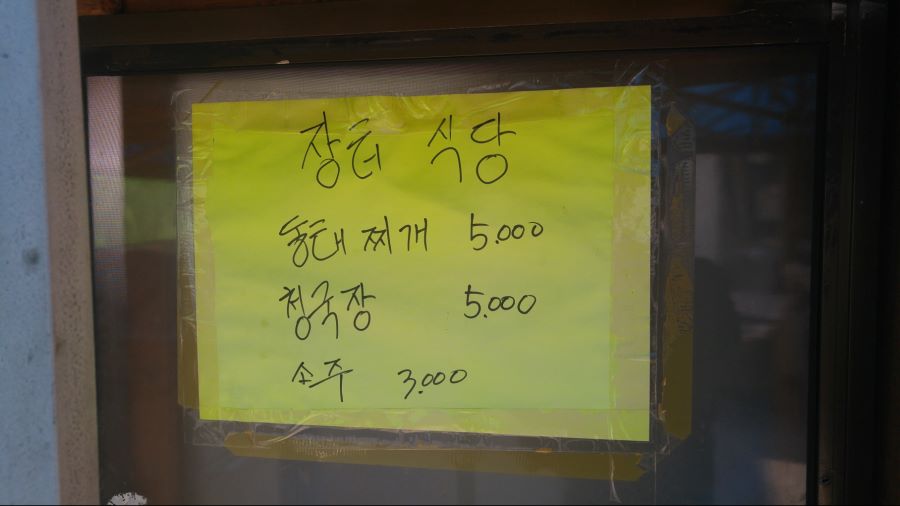 장터 식당
동태 찌개 5.000
청국장 5.000
소주 3.000